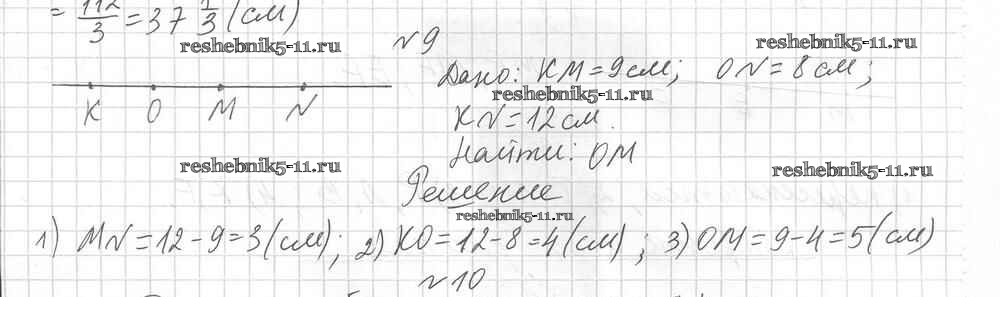 = 112/3 = 37 1/3 (см)
reshebnik5-11.ru
№9
reshebnik5-11.ru
Дано: KM = 9 см; ON = 8 см;
reshebnik5-11.ru
K O M N
KN = 12 см.
Найти: OM
reshebnik5-11.ru
reshebnik5-11.ru
Решение
reshebnik5-11.ru
1) MN = 12 - 9 = 3 (см); 2) KO = 12 - 8 = 4 (см); 3) OM = 9 - 4 = 5 (см)
№10